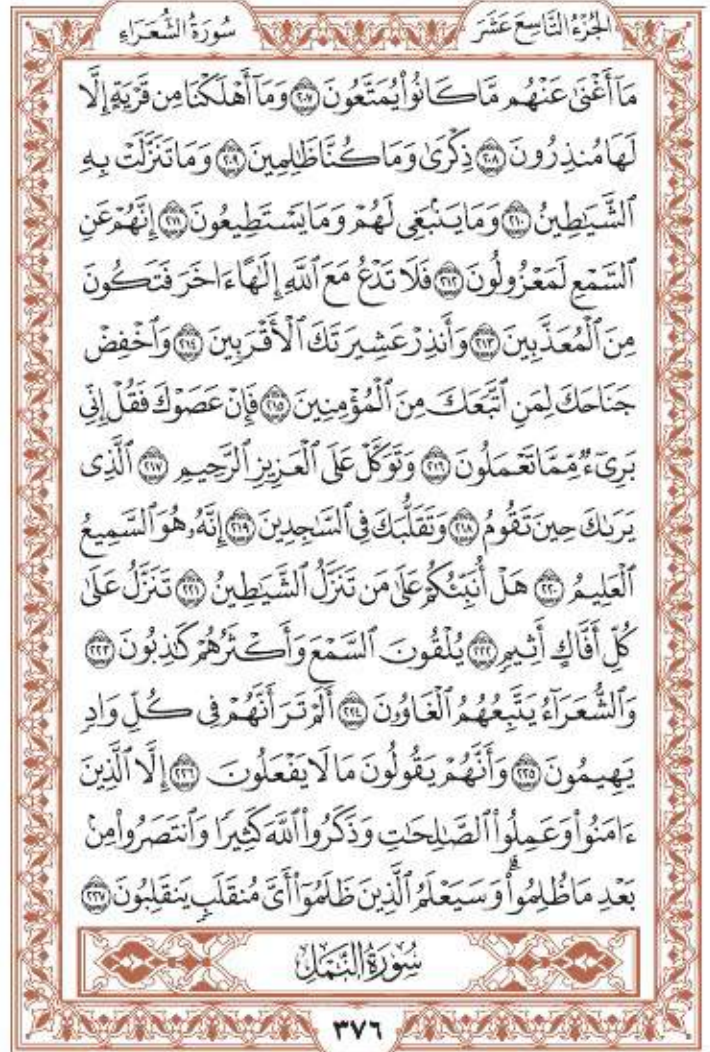 الجُزْءُ التَّاسِعَ عَشَرَ سُورَةُ الشُّعَرَاءِ
مَآ أَغْنَىٰ عَنْهُم مَّا كَانُوا۟ يُمَتَّعُونَ ٢٠٧ وَمَآ أَهْلَكْنَا مِن قَرْيَةٍ إِلَّا
لَهَا مُنذِرُونَ ٢٠٨ ذِكْرَىٰ وَمَا كُنَّا ظَٰلِمِينَ ٢٠٩ وَمَا تَنَزَّلَتْ بِهِ
ٱلشَّيَٰطِينُ ٢١٠ وَمَا يَنۢبَغِى لَهُمْ وَمَا يَسْتَطِيعُونَ ٢١١ إِنَّهُمْ عَنِ
ٱلسَّمْعِ لَمَعْزُولُونَ ٢١٢ فَلَا تَدْعُ مَعَ ٱللَّهِ إِلَٰهًا ءَاخَرَ فَتَكُونَ
مِنَ ٱلْمُعَذَّبِينَ ٢١٣ وَأَنذِرْ عَشِيرَتَكَ ٱلْأَقْرَبِينَ ٢١٤ وَٱخْفِضْ
جَنَاحَكَ لِمَنِ ٱتَّبَعَكَ مِنَ ٱلْمُؤْمِنِينَ ٢١٥ فَإِنْ عَصَوْكَ فَقُلْ إِنِّى
بَرِىٓءٌ مِّمَّا تَعْمَلُونَ ٢١٦ وَتَوَكَّلْ عَلَى ٱلْعَزِيزِ ٱلرَّحِيمِ ٢١٧ ٱلَّذِى
يَرَىٰكَ حِينَ تَقُومُ ٢١٨ وَتَقَلُّبَكَ فِى ٱلسَّٰجِدِينَ ٢١٩ إِنَّهُۥ هُوَ ٱلسَّمِيعُ
ٱلْعَلِيمُ ٢٢٠ هَلْ أُنَبِّئُكُمْ عَلَىٰ مَن تَنَزَّلُ ٱلشَّيَٰطِينُ ٢٢١ تَنَزَّلُ عَلَىٰ
كُلِّ أَفَّاكٍ أَثِيمٍ ٢٢٢ يُلْقُونَ ٱلسَّمْعَ وَأَكْثَرُهُمْ كَٰذِبُونَ ٢٢٣
وَٱلشُّعَرَآءُ يَتَّبِعُهُمُ ٱلْغَاوُۥنَ ٢٢٤ أَلَمْ تَرَ أَنَّهُمْ فِى كُلِّ وَادٍ
يَهِيمُونَ ٢٢٥ وَأَنَّهُمْ يَقُولُونَ مَا لَا يَفْعَلُونَ ٢٢٦ إِلَّا ٱلَّذِينَ
ءَامَنُوا۟ وَعَمِلُوا۟ ٱلصَّٰلِحَٰتِ وَذَكَرُوا۟ ٱللَّهَ كَثِيرًا وَٱنتَصَرُوا۟ مِنۢ
بَعْدِ مَا ظُلِمُوا۟ ۗ وَسَيَعْلَمُ ٱلَّذِينَ ظَلَمُوٓا۟ أَىَّ مُنقَلَبٍ يَنقَلِبُونَ ٢٢٧
سُورَةُ النَّمْلِ
٣٧٦